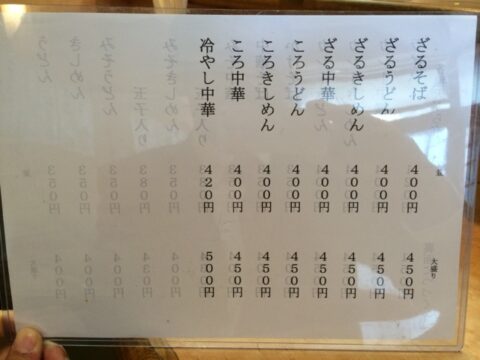 ざるそば 400円 450円
ざるうどん 400円 450円
ざるきしめん 400円 450円
ざる中華 400円 450円
ころうどん 400円 450円
ころきしめん 400円 450円
ころ中華 400円 450円
冷やし中華 420円 500円
並
大盛り